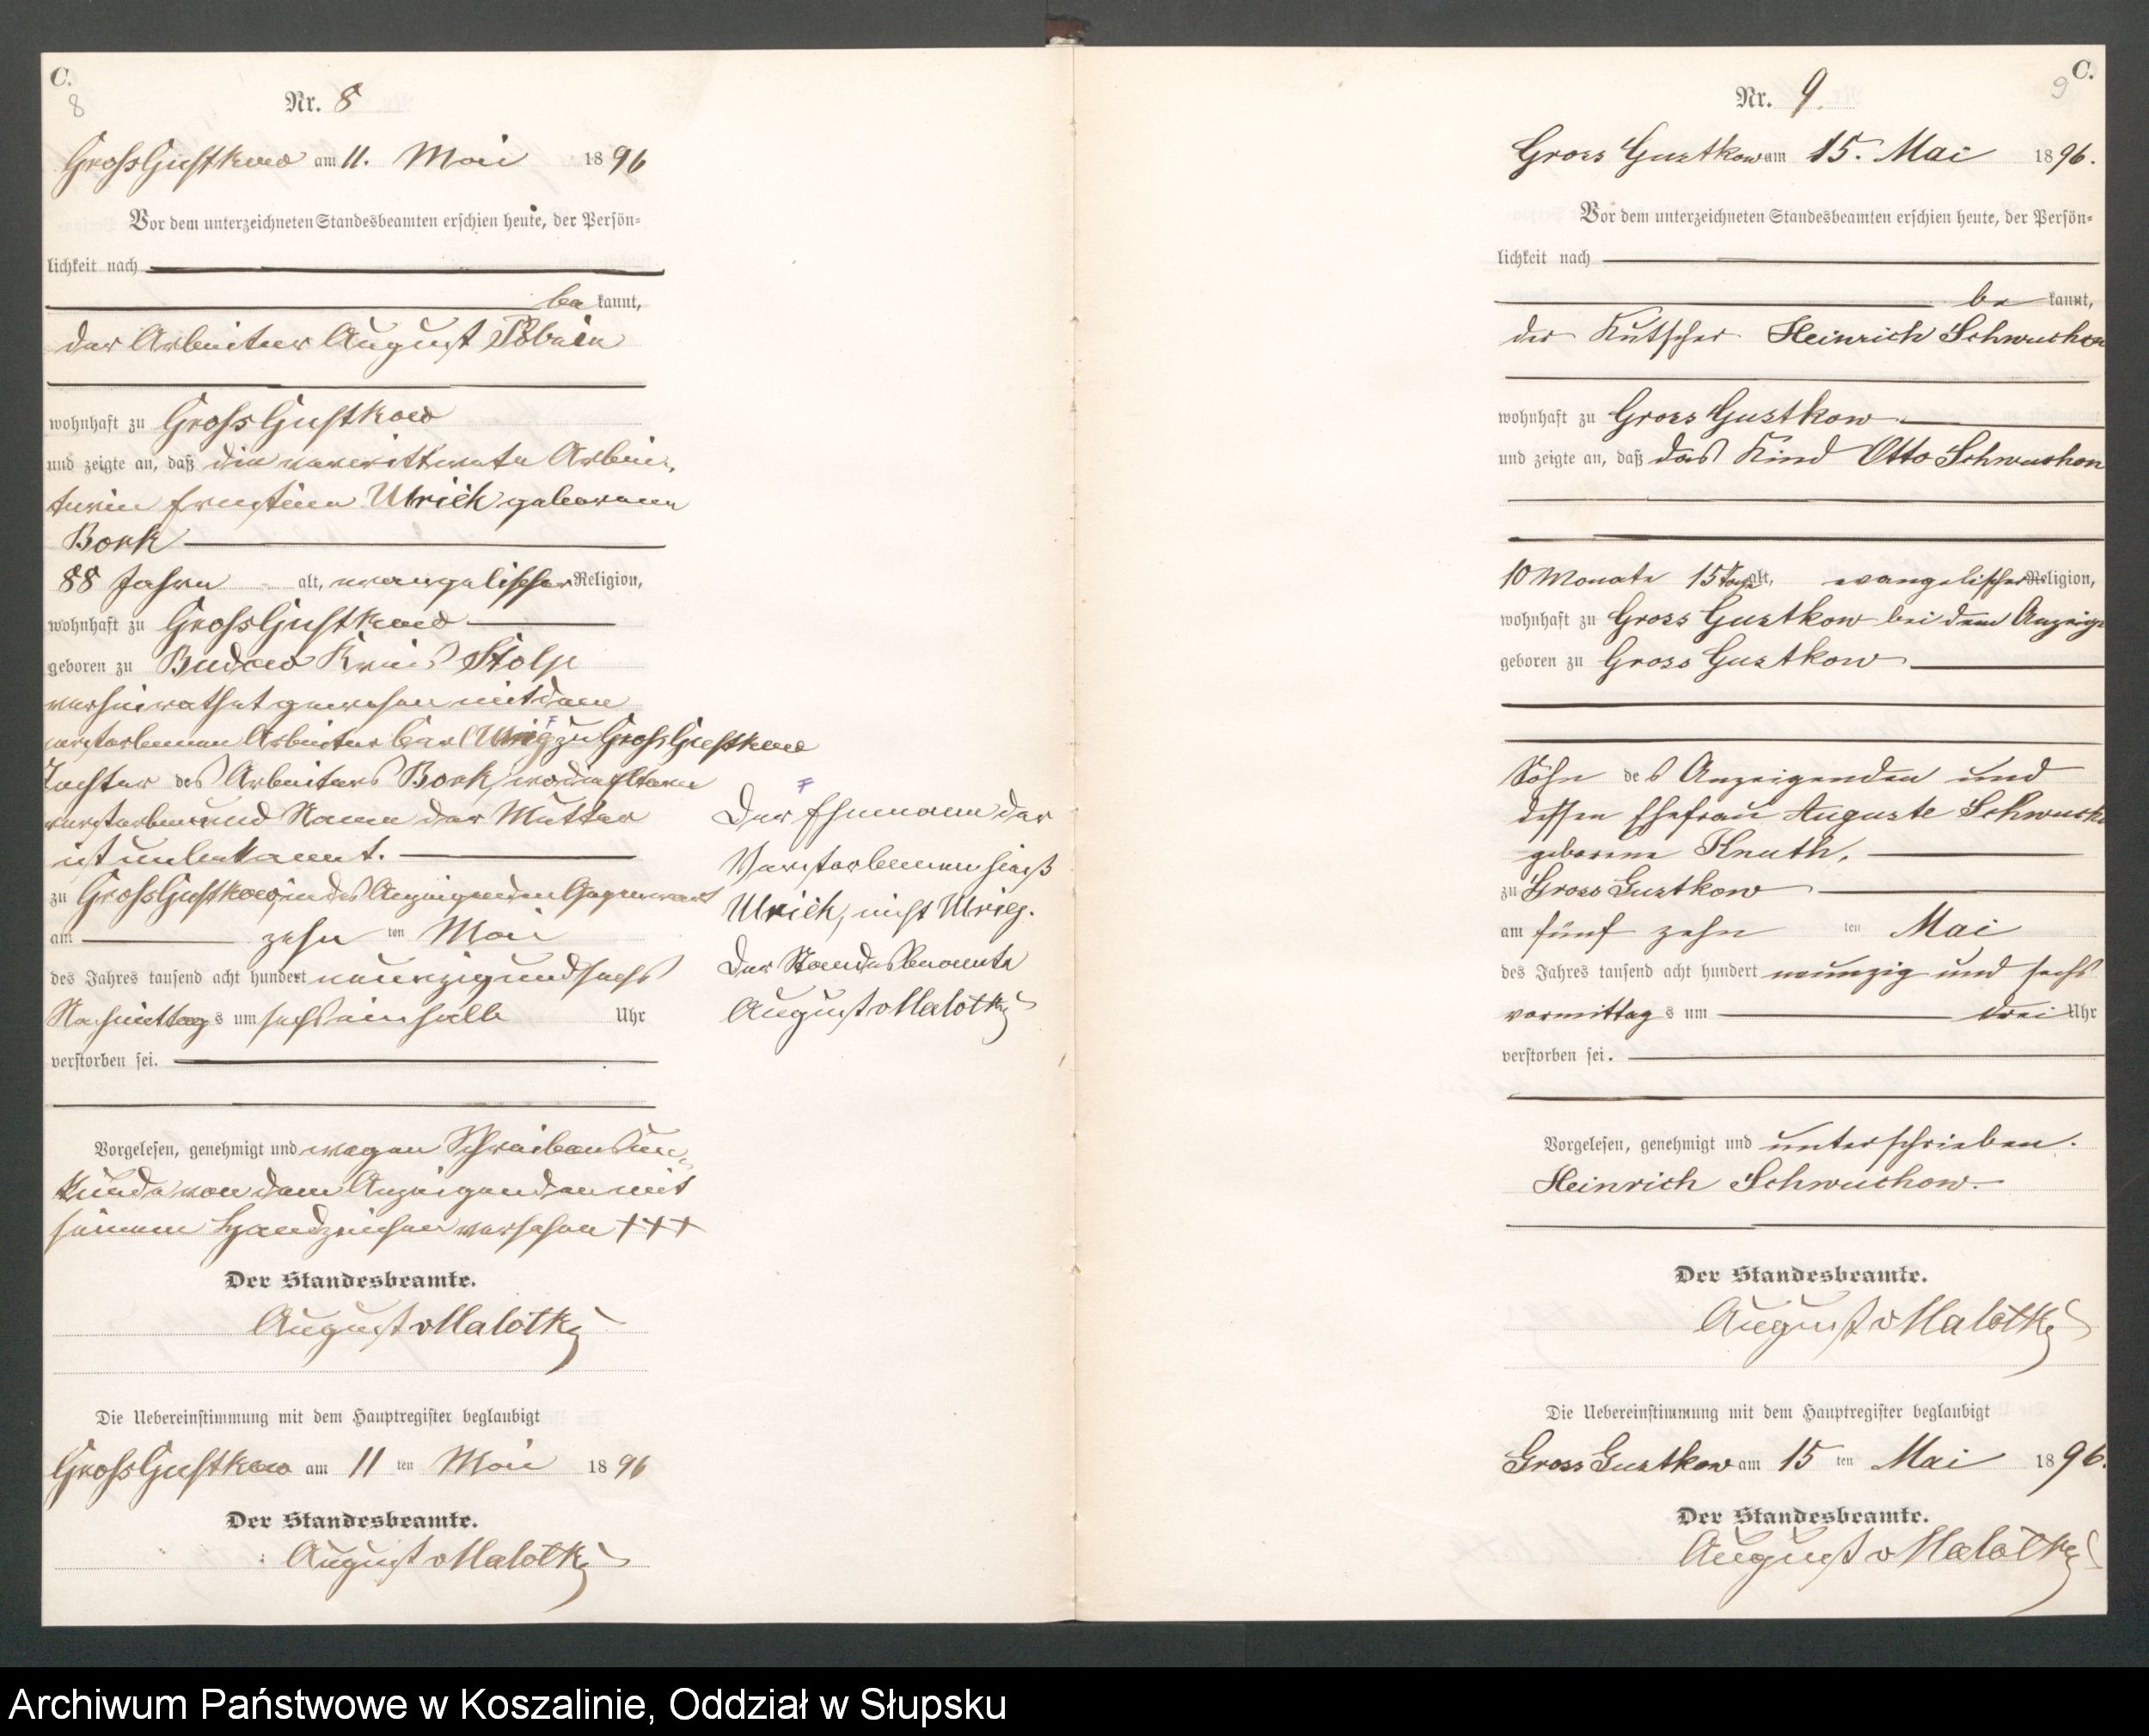 C.
8
Nr. 8
Gross Gustkow am 11. Mai 1896
Vor dem unterzeichneten Standesbeamten erschien heute, der Persön-
lichkeit nach
be kannt,
der Arbeiter August
wohnhaft zu Gross Gustkow
und zeigte an, daß die verwittwete Arbei-
terin Ernstine Ulrich geborene
Bork
88 Jahre alt, evangelischer Religion,
wohnhaft zu Gross Gustkow
geboren zu Budow Kreis Stolp
verheirathet gewesen mit dem
verstorbenen Arbeiter Carl Ulrieg zu Gross Gustkow
Tochter des Arbeiters Bork, wo die Eltern
verstorben und Name der Mutter
ist unbekannt.
zu Gross Gustkow, in des Anzeigenden Gegenwart
am zehn ten Mai
des Jahres tausend acht hundert neunzig und sechs
Nachmittags um sechs ein halb Uhr
verstorben sei.
Vorgelesen, genehmigt und wegen Schreibensun-
kunde von dem Anzeigenden mit
seinem Handzeichen versehen +++
Der Standesbeamte.
August v Malotky
Die Uebereinstimmung mit dem Hauptregister beglaubigt
Gross Gustkow am 11 ten Mai 1896
Der Standesbeamte.
August v Malotky
F
Der Ehemann der
Verstorbenen hieß
Ulrich, nicht Ulrieg.
Der Standesbeamte
August v Malotky
C.
9
Nr. 9.
Gross Gustkow am 15. Mai 1896.
Vor dem unterzeichneten Standesbeamten erschien heute, der Persön-
lichkeit nach
be kannt,
der Kutscher Heinrich Schwuchow
wohnhaft zu Gross Gustkow
und zeigte an, daß das Kind Otto Schwuchow
10 Monate 15 Tage alt, evangelischer Religion,
wohnhaft zu Gross Gustkow bei dem Anzeige
geboren zu Gross Gustkow
Sohn des Anzeigenden und
dessen Ehefrau Auguste Schwucho
geborene Knuth,
zu Gross Gustkow
am fünf zehn ten Mai
des Jahres tausend acht hundert neunzig und sechs
vormittags um drei Uhr
verstorben sei.
Vorgelesen, genehmigt und unterschrieben.
Heinrich Schwuchow.
Der Standesbeamte.
August v Malotky
Die Uebereinstimmung mit dem Hauptregister beglaubigt
Gross Gustkow am 15 ten Mai 1896.
Der Standesbeamte.
August v Malotky
Archiwum Państwowe w Koszalinie, Oddział w Słupsku